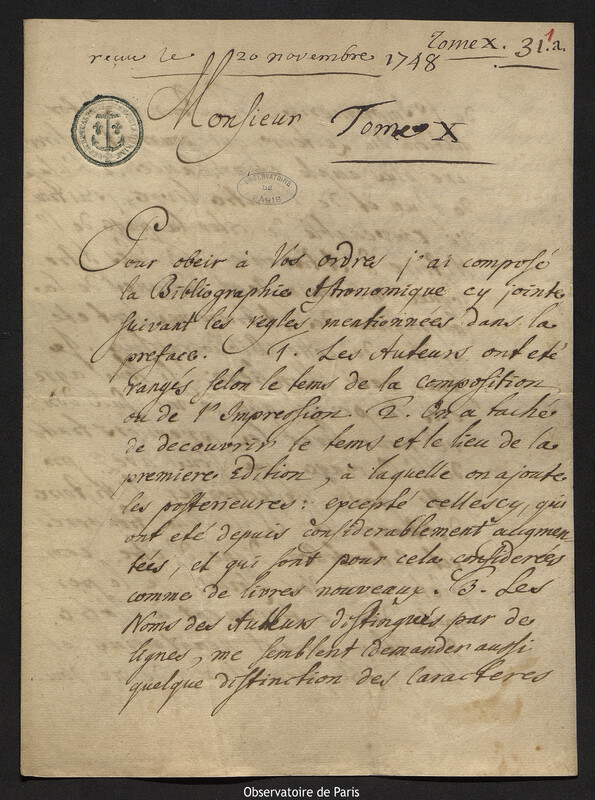 Tome X. 31.1.a.
reçu le 20 novembre 1748
Monsieur Tome X
OBSERVATOIRE
DE
PARIS
Pour obeir à Vos ordres j'ai composé
la Bibliographie Astronomique cy jointe
suivant les regles mentionnées dans la
preface. 1. Les Auteurs ont eté
rangés selon le tems de la composition
ou de l'Impression 2. On a taché
de decouvrir le tems et le lieu de la
premiere Edition, à laquelle on ajoute
les posterieures: excepté cellescy, qui
ont eté depuis considerablement augmen
tées, et qui sont pour cela considerées
comme de livres nouveaux. 3. Les
Noms des Auteurs distingués par de
lignes, me semblent demander aussi
quelque distinction des caracteres
Observatoire de Paris